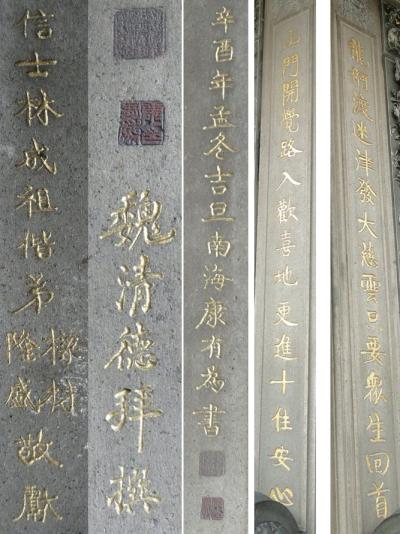 龍渡迷津發大慈雲只要衆生回首
山門開覺路入歡喜地更進十住安心
辛酉年孟冬吉旦南海康有為書
魏清德拜撰
信士林成祖偕弟材隆盛敬獻